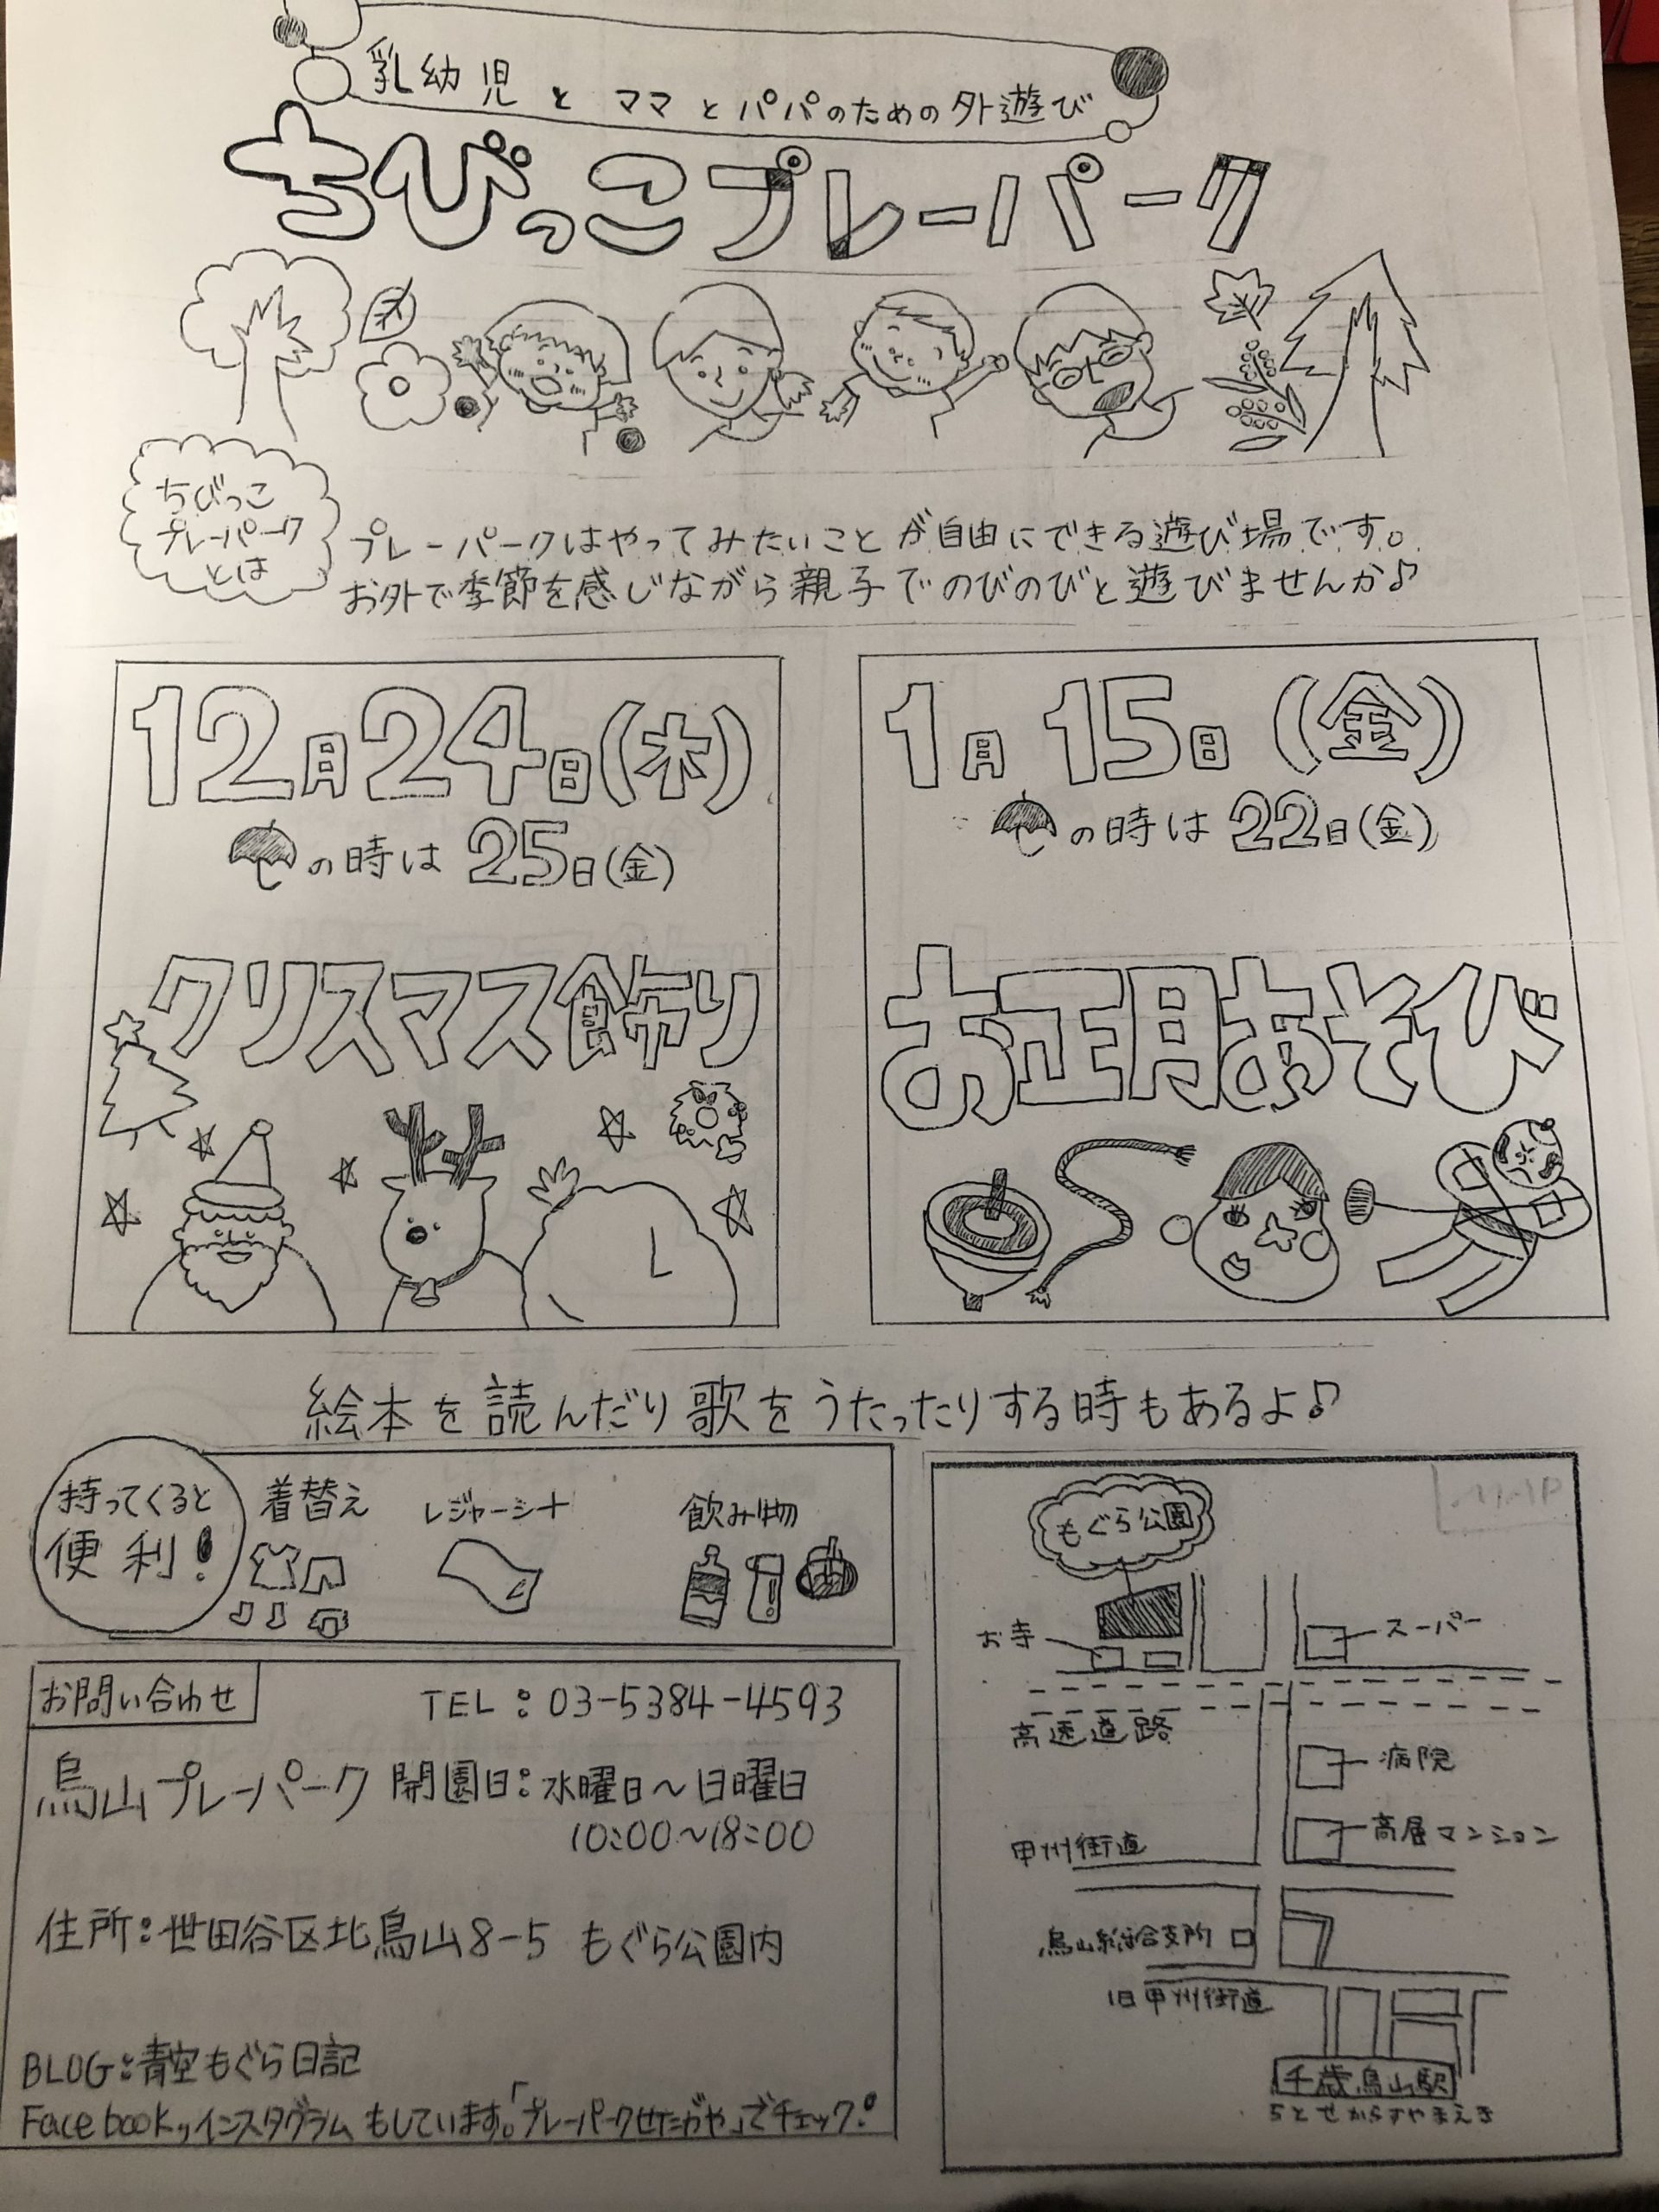 乳幼児とママとパパのための外遊び
ちびっこプレーパーク
ちびっこ
プレーパーク
とは
プレーパークはやってみたいことが自由にできる遊び場です。
お外で季節を感じながら親子でのびのびと遊びませんか♪
12月24日(木)
の時は 25日(金)
クリスマス飾り
1月15日(金)
の時は 22日(金)
お正月あそび
絵本を読んだり歌をうたったりする時もあるよ♪
持ってくると
便利!
着替え
レジャーシート
飲み物
お問い合わせ
TEL:03-5384-4593
烏山プレーパーク 開園日:水曜日〜日曜日
10:00〜18:00
住所:世田谷区北烏山8-5 もぐら公園内
BLOG:青空もぐら日記
Facebook,インスタグラムもしています。「プレーパークせたがや」でチェック!
MAP
もぐら公園
お寺
スーパー
高速道路
病院
高層マンション
甲州街道
烏山総合支所
旧甲州街道
千歳烏山駅
ちとせからすやまえき